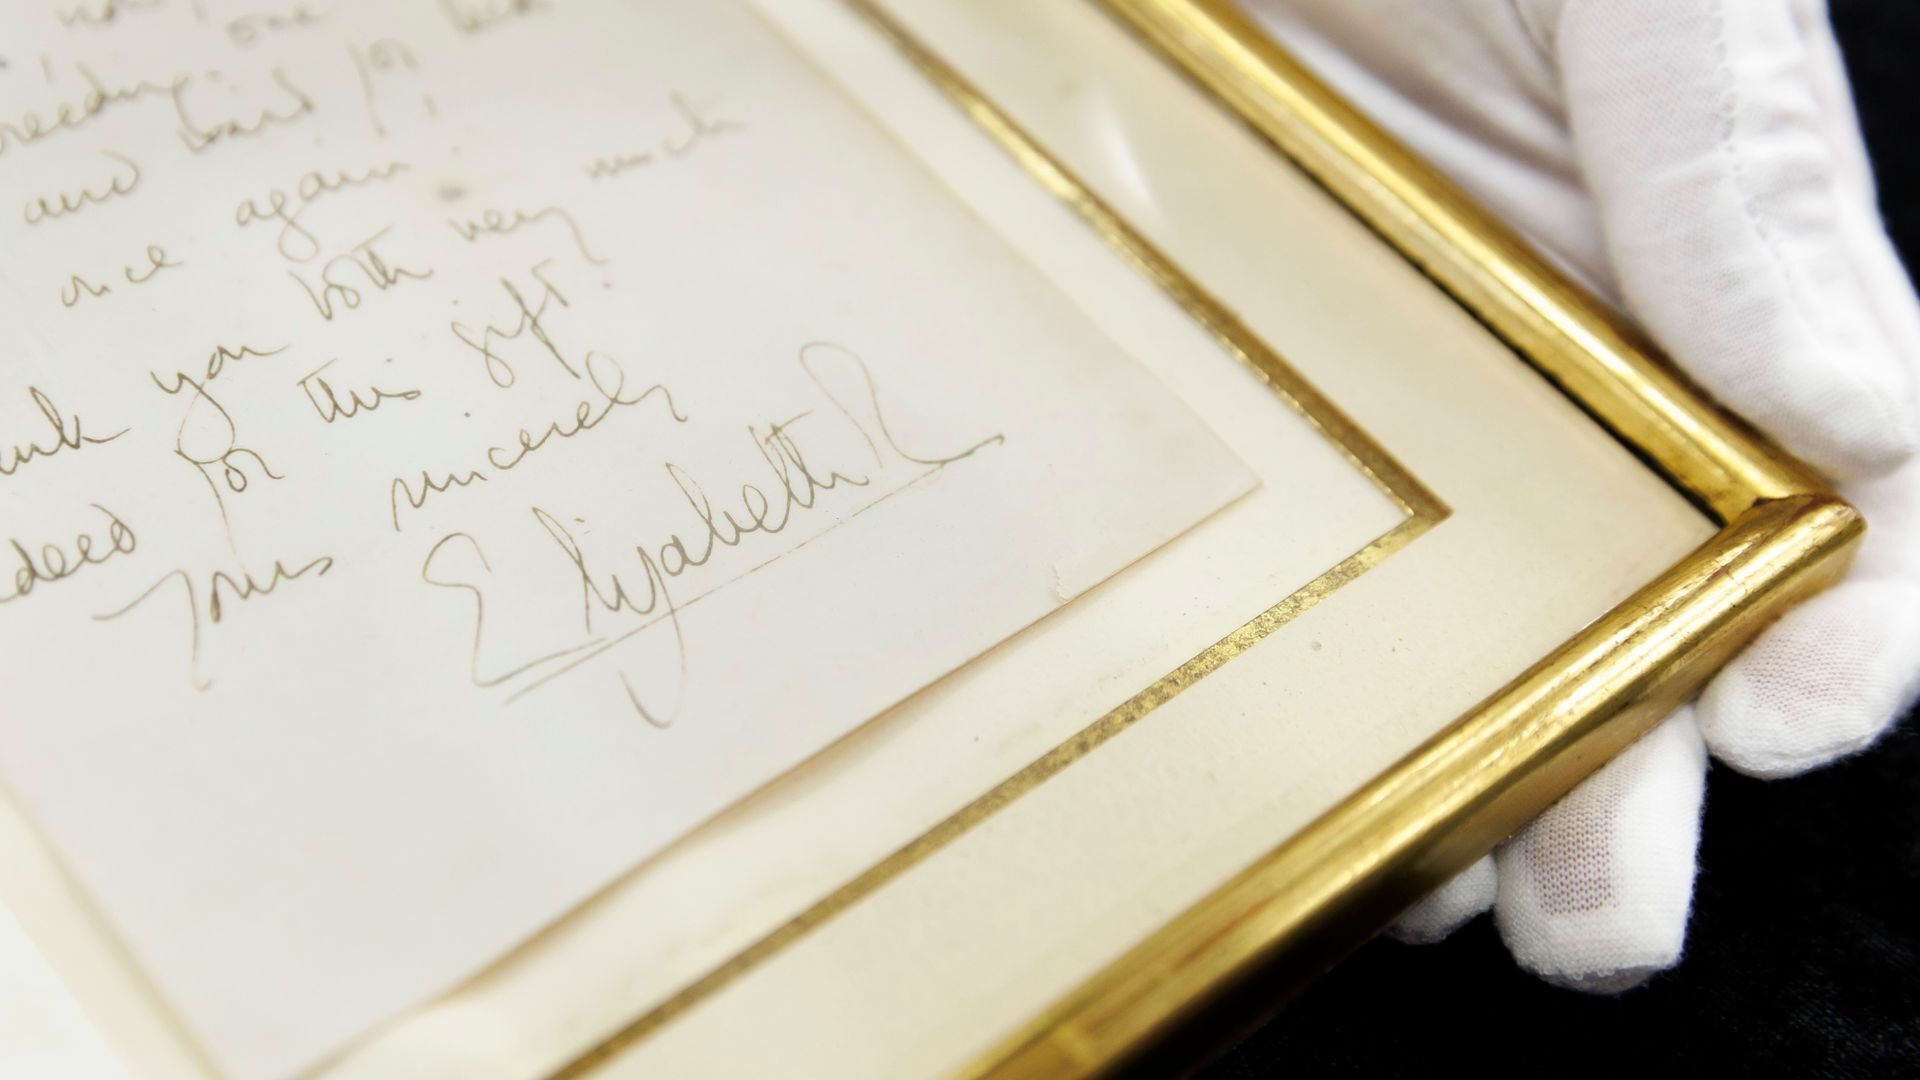 reeding. one
and wait for
once again!
ank you both very much
deed for this gift.
Yours sincerely
Elizabeth R